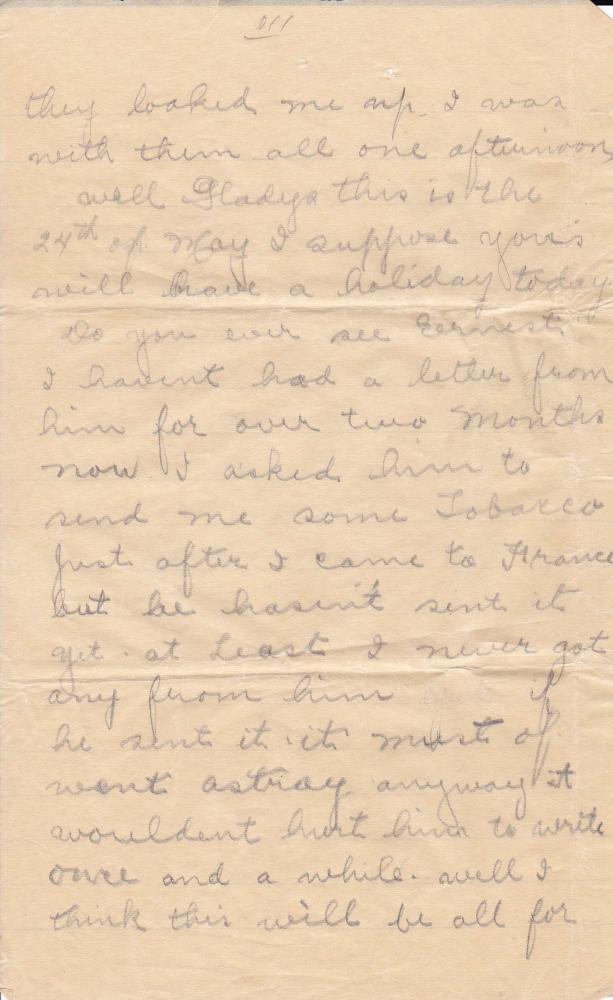 they looked me up. I was
with them all one afternoon
well Gladys this is the
24th of May I suppose yous
will have a holiday today
Do you ever see Eernest.
I havent had a letter from
him for over two Months
now I asked him to
send me some Tobacco
Just after I came to France
but he hasin't sent it
yet. at Least I never got
any from him if
he sent it. it must of
went astray. anyway it
wouldent hurt him to write
once and a while. well I
think this will be all for